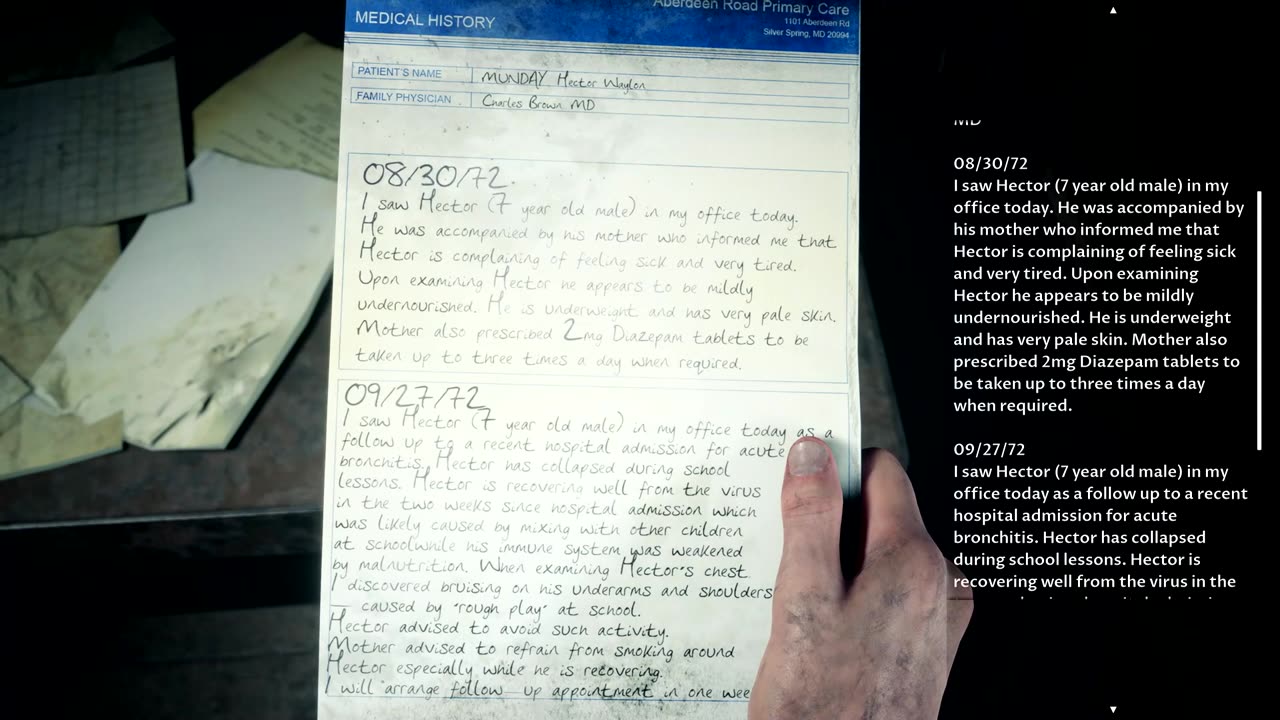 MEDICAL HISTORY
Aberdeen Road Primary Care
1101 Aberdeen Rd
Silver Spring, MD 20994
PATIENT'S NAME
MUNDAY Hector Waylon
FAMILY PHYSICIAN
Charles Brown MD
08/30/72.
I saw Hector (7 year old male) in my office today.
He was accompanied by his mother who informed me that
Hector is complaining of feeling sick and very tired.
Upon examining Hector he appears to be mildly
undernourished. He is underweight and has very pale skin.
Mother also prescribed 2mg Diazepam tablets to be
taken up to three times a day when required.
09/27/72
I saw Hector (7 year old male) in my office today as a
follow up to a recent hospital admission for acute
bronchitis. Hector has collapsed during school
lessons. Hector is recovering well from the virus
in the two weeks since hospital admission which
was likely caused by mixing with other children
at schoolwhile his immune system was weakened
by malnutrition. When examining Hector's chest
I discovered bruising on his underarms and shoulders
— caused by "rough play" at school.
Hector advised to avoid such activity.
Mother advised to refrain from smoking around
Hector especially while he is recovering.
I will arrange follow up appointment in one
MD
08/30/72
I saw Hector (7 year old male) in my
office today. He was accompanied by
his mother who informed me that
Hector is complaining of feeling sick
and very tired. Upon examining
Hector he appears to be mildly
undernourished. He is underweight
and has very pale skin. Mother also
prescribed 2mg Diazepam tablets to
be taken up to three times a day
when required.
09/27/72
I saw Hector (7 year old male) in my
office today as a follow up to a recent
hospital admission for acute
bronchitis. Hector has collapsed
during school lessons. Hector is
recovering well from the virus in the